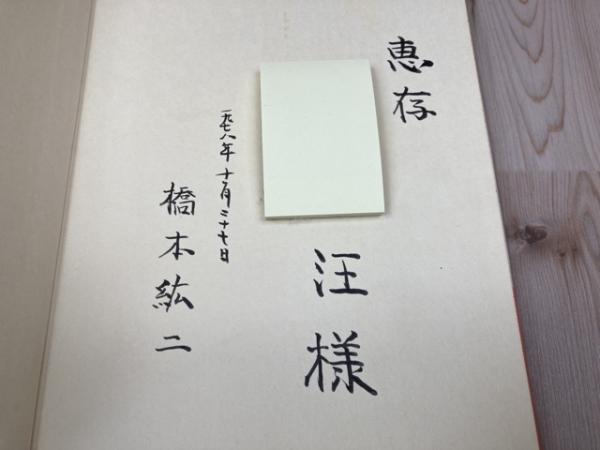 恵存
汪様
一九七八年十月二十七日
橋本紘二